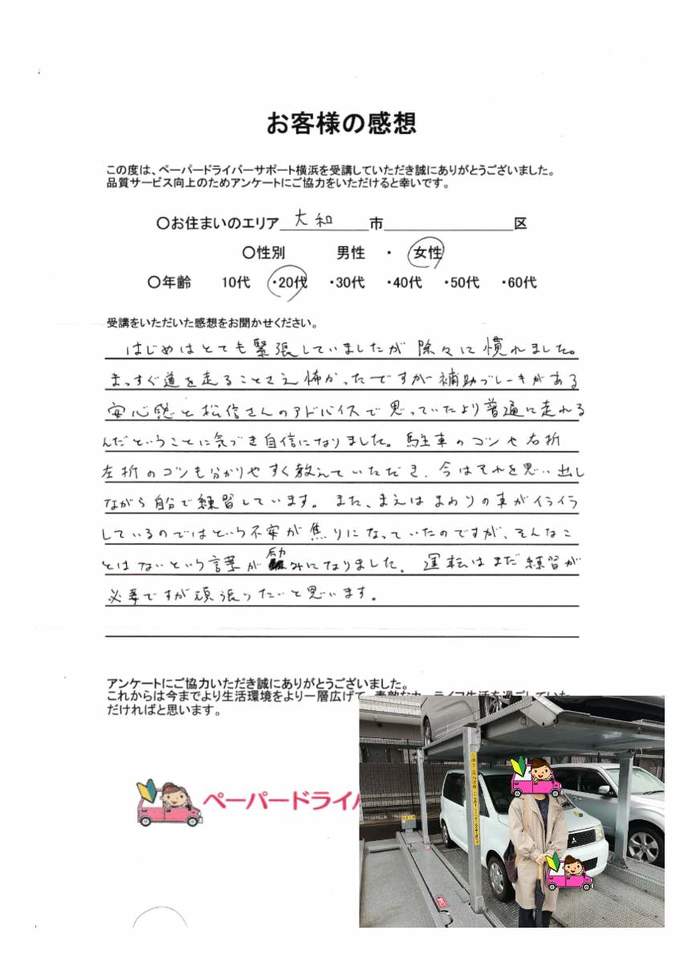 お客様の感想
この度は、ペーパードライバーサポート横浜を受講していただき誠にありがとうございました。
品質サービス向上のためアンケートにご協力をいただけると幸いです。
〇お住まいのエリア 大和 市 区
〇性別 男性 ・ 女性
〇年齢 10代 ・20代 ・30代 ・40代 ・50代 ・60代
受講をいただいた感想をお聞かせください。
はじめはとても緊張していましたが 除々に慣れました。
まっすぐ道を走ることさえ怖かったですが補助ブレーキがある
安心感と松信さんのアドバイスで思っていたより普通に走れる
んだということに気づき自信になりました。駐車のコツや右折
左折のコツも分かりやすく教えていただき、今はそれを思い出し
ながら自分で練習しています。また、まえはまわりの車がイライラ
しているのではという不安が焦りになっていたのですが、そんなこ
とはないという言葉が励みになりました。運転はまだ練習が
必要ですが頑張りたいと思います。
アンケートにご協力いただき誠にありがとうございました。
これからは今までより生活環境をより一層広げて、素敵なカーライフ生活を過ごしていた
だければと思います。
ペーパードライバ